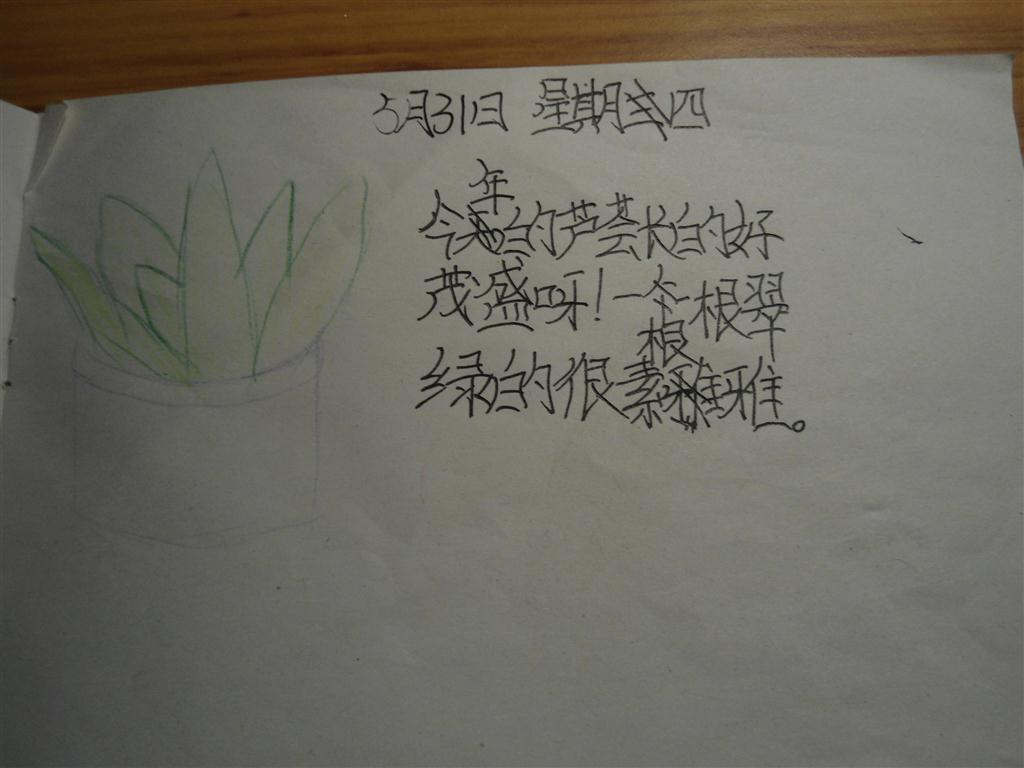 5月31日 星期四
今年的芦荟长的好
茂盛呀!一根根翠
绿的很素雅。